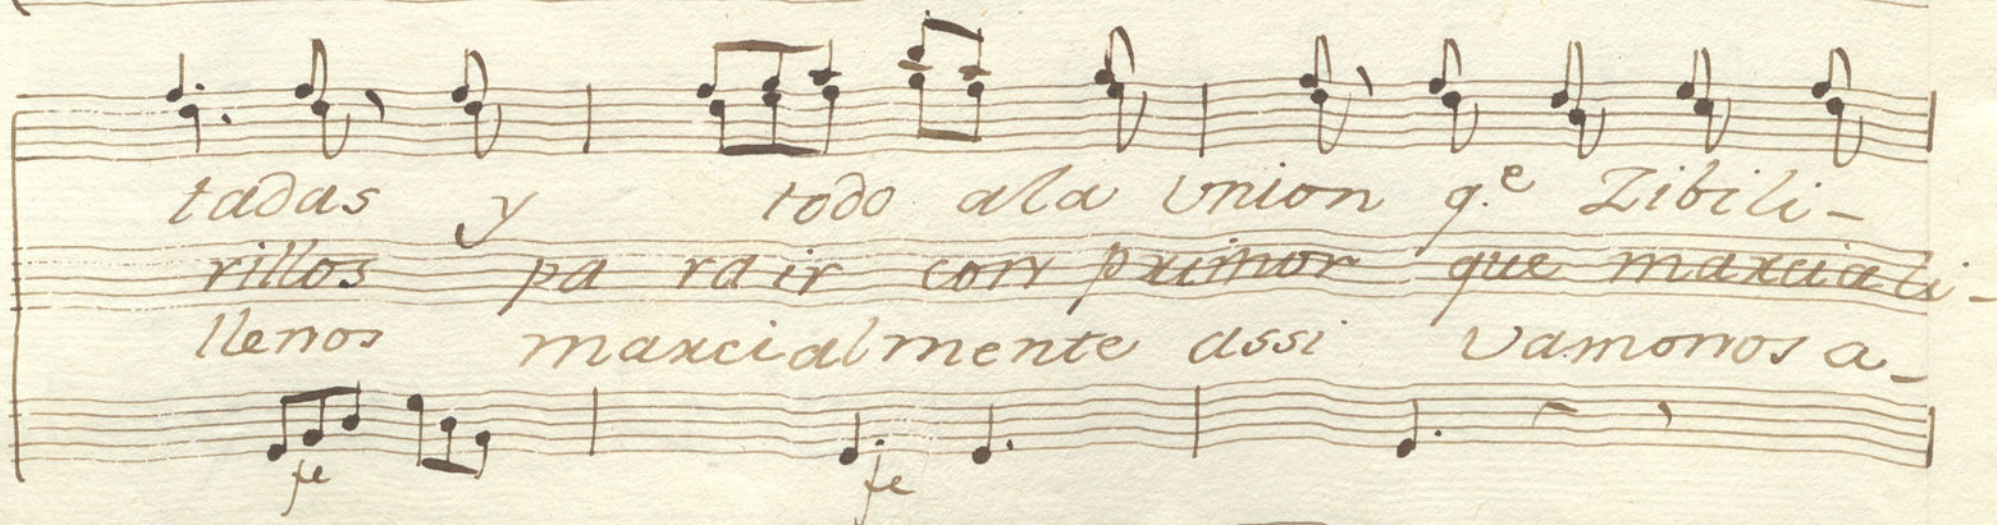 tadas y todo ala Union q.e Zibili-
rillos pa ra ir con primor que marciali-
llenos marcialmente assi vamonos a-
fe fe